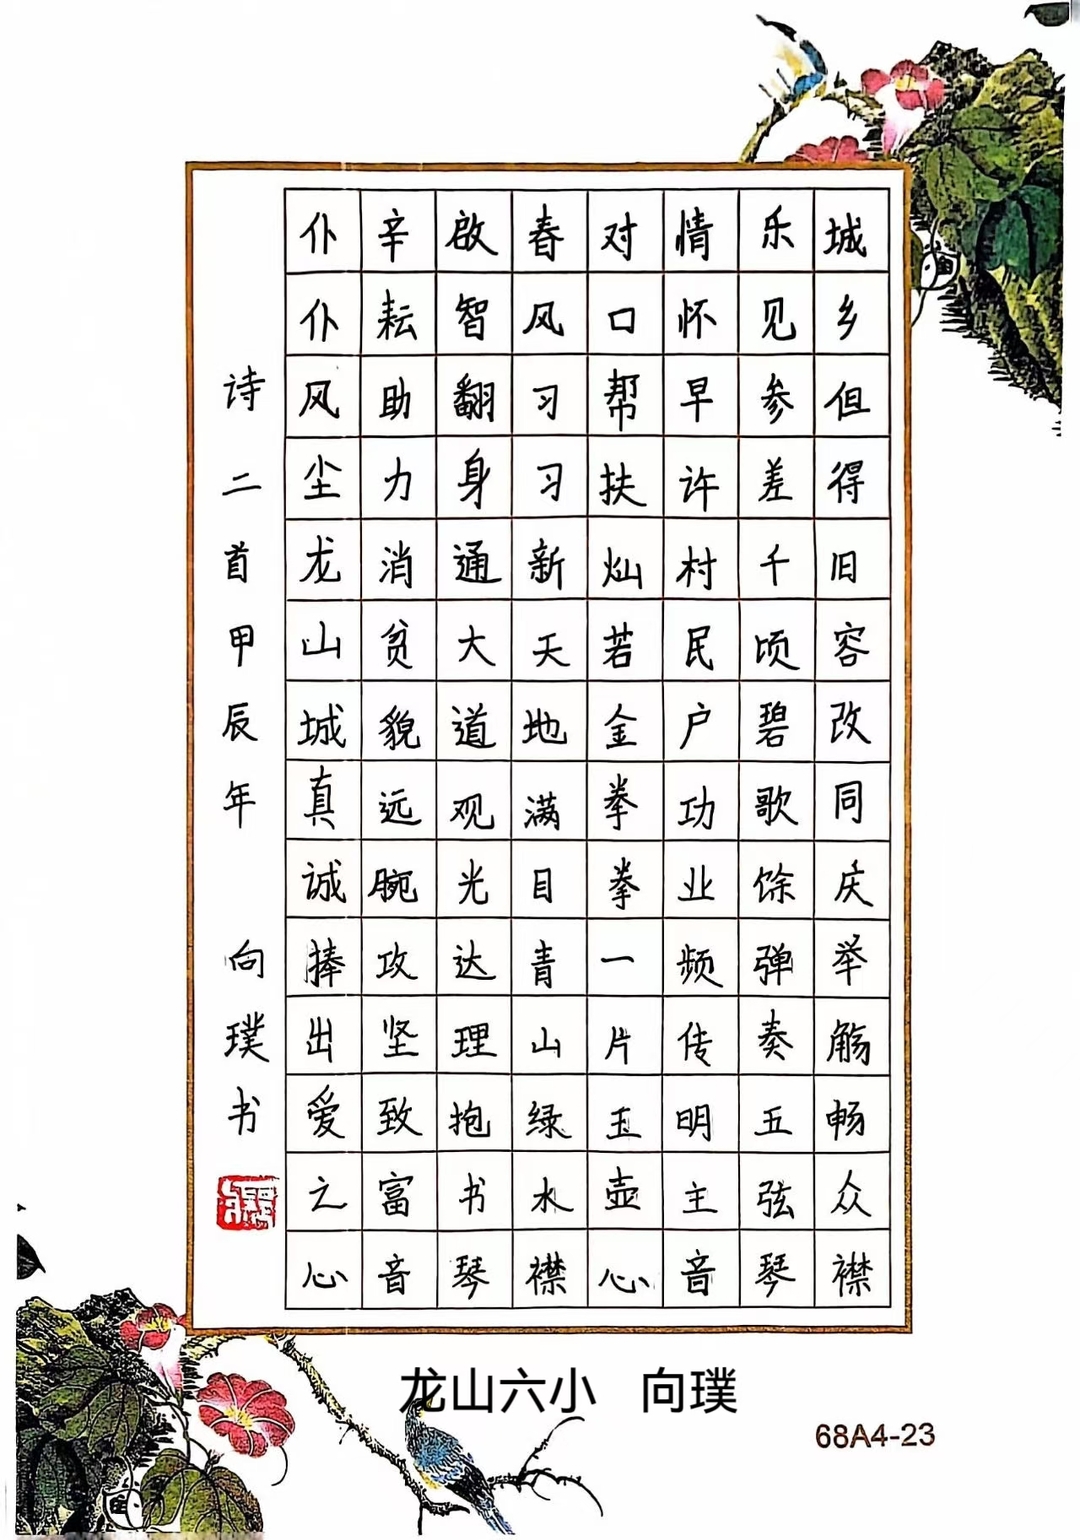 城乡但得旧容改同庆举觞畅众襟
乐见参差千顷碧歌馀弹奏五弦琴
情怀早许村民户功业频传明主音
对口帮扶灿若金拳拳一片玉壶心
春风习习新天地满目青山绿水襟
啟智翻身通大道观光达理抱书琴
辛耘助力消贫貌远腕攻坚致富音
仆仆风尘龙山城真诚捧出爱之心
诗二首甲辰年 向璞书
龙山六小 向璞
68A4-23